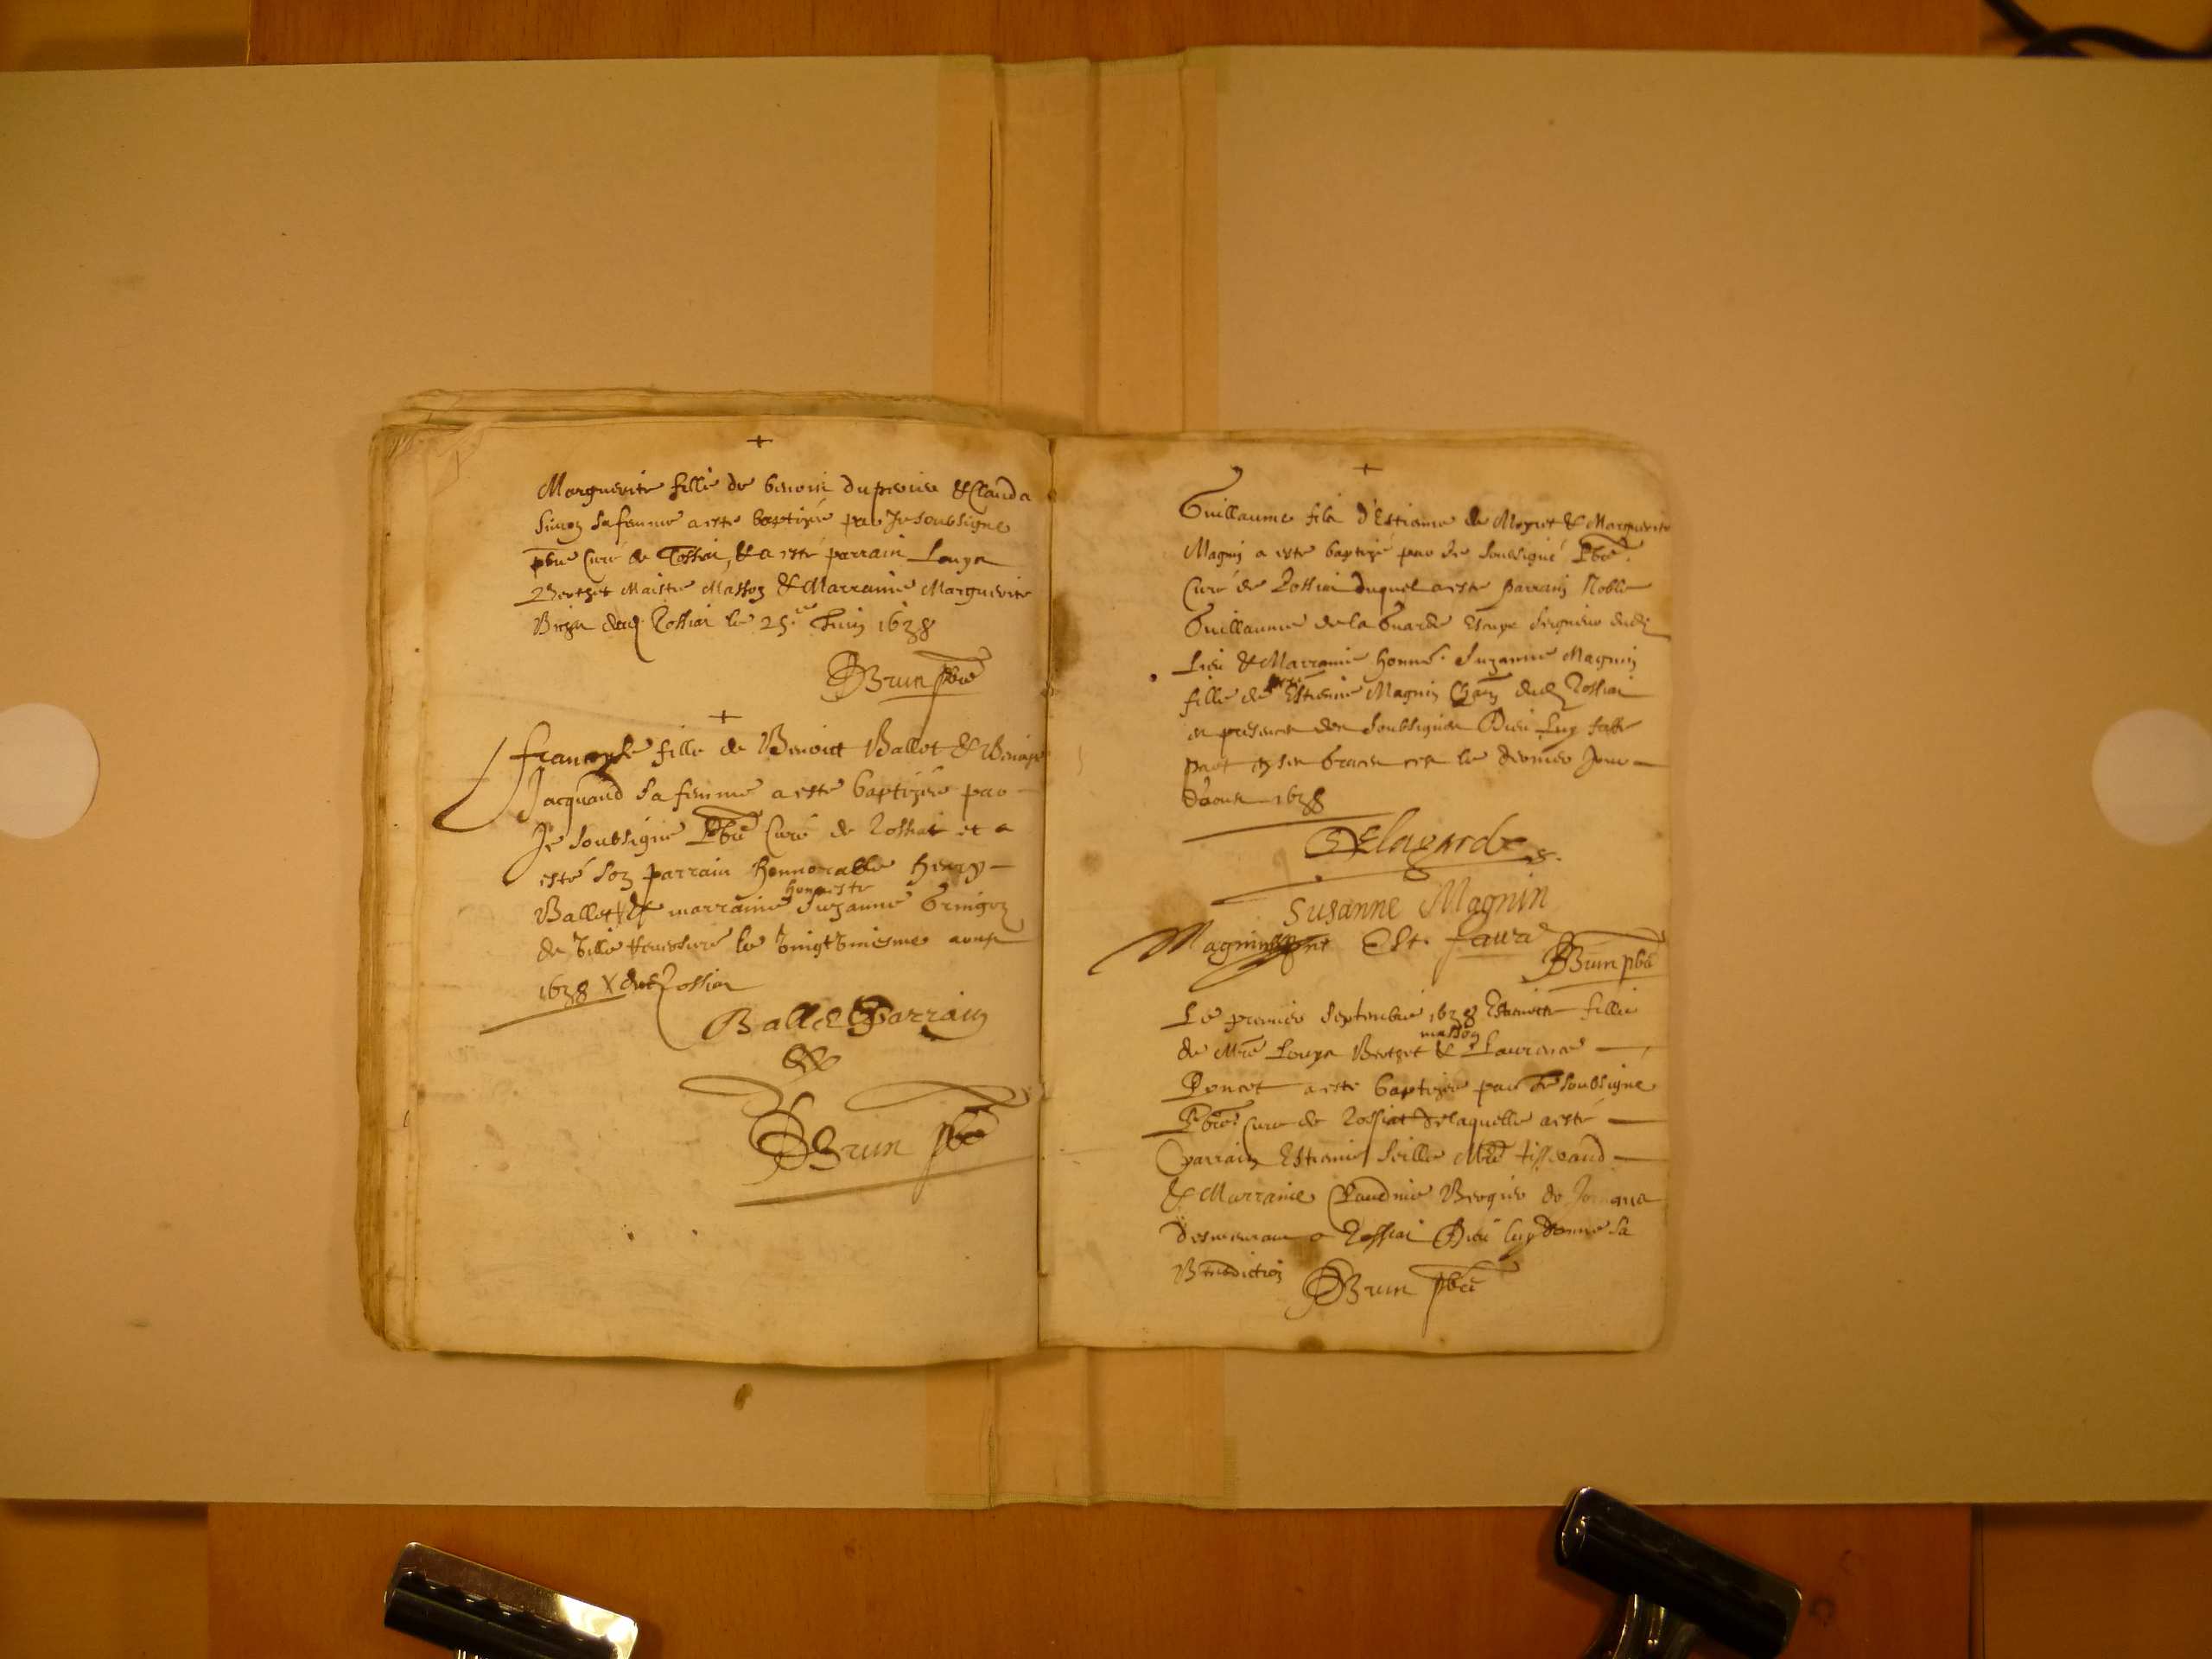 +
Marguerite fille de benoist duperier & Clauda
Simon sa femme a esté baptizée par Je soubsigne
pbre Curé de Tossiat, & a esté parrain Louys
Berthet Maistre Masson & Marraine Marguerite
dud Tossiat le 25e Juin 1638
DBrun pbre
+
françoyse fille de Benoict Ballet &
Jacquand sa femme a esté baptizée par
Je soubsigné Pbre Curé de Tossiat et a
esté son parrain honnorable henry
honneste
Ballet & marraine Suzanne Gringoz
de le vingt uniesme aoust
1638 dud Tossiat
Ballet Parrain
DBrun pbre
+
Guillaume fils d'Estienne de & Marguerite
Magnin a esté baptizé par Je soubsigné Pbre
Curé de Tossiat duquel a esté parrain Noble
Guillaume de la Guarde Escuye Seigneur dudt
Lieu & Marraine honne. Suzanne Magnin
fille de Estienne Magnin dud Tossiat
en presence des soubsignes Dieu Luy fasse
part de ses graces ce le dernier Jour
d'aoust 1638
Delagarde
Susanne Magnin
Magnin Est. favre
DBrun pbre
Le premier Septembre 1638 Estiennette fille
masson
de Mre Louys Berthet & Laurence
Poncet a esté baptizée par Je soubsigne
Pbre Curé de Tossiat de laquelle a esté
parrain Estienne Mre tisserand
& Marraine Claudine Bergier de
demeurant a Tossiat Dieu luy donne sa
Benediction
DBrun pbre